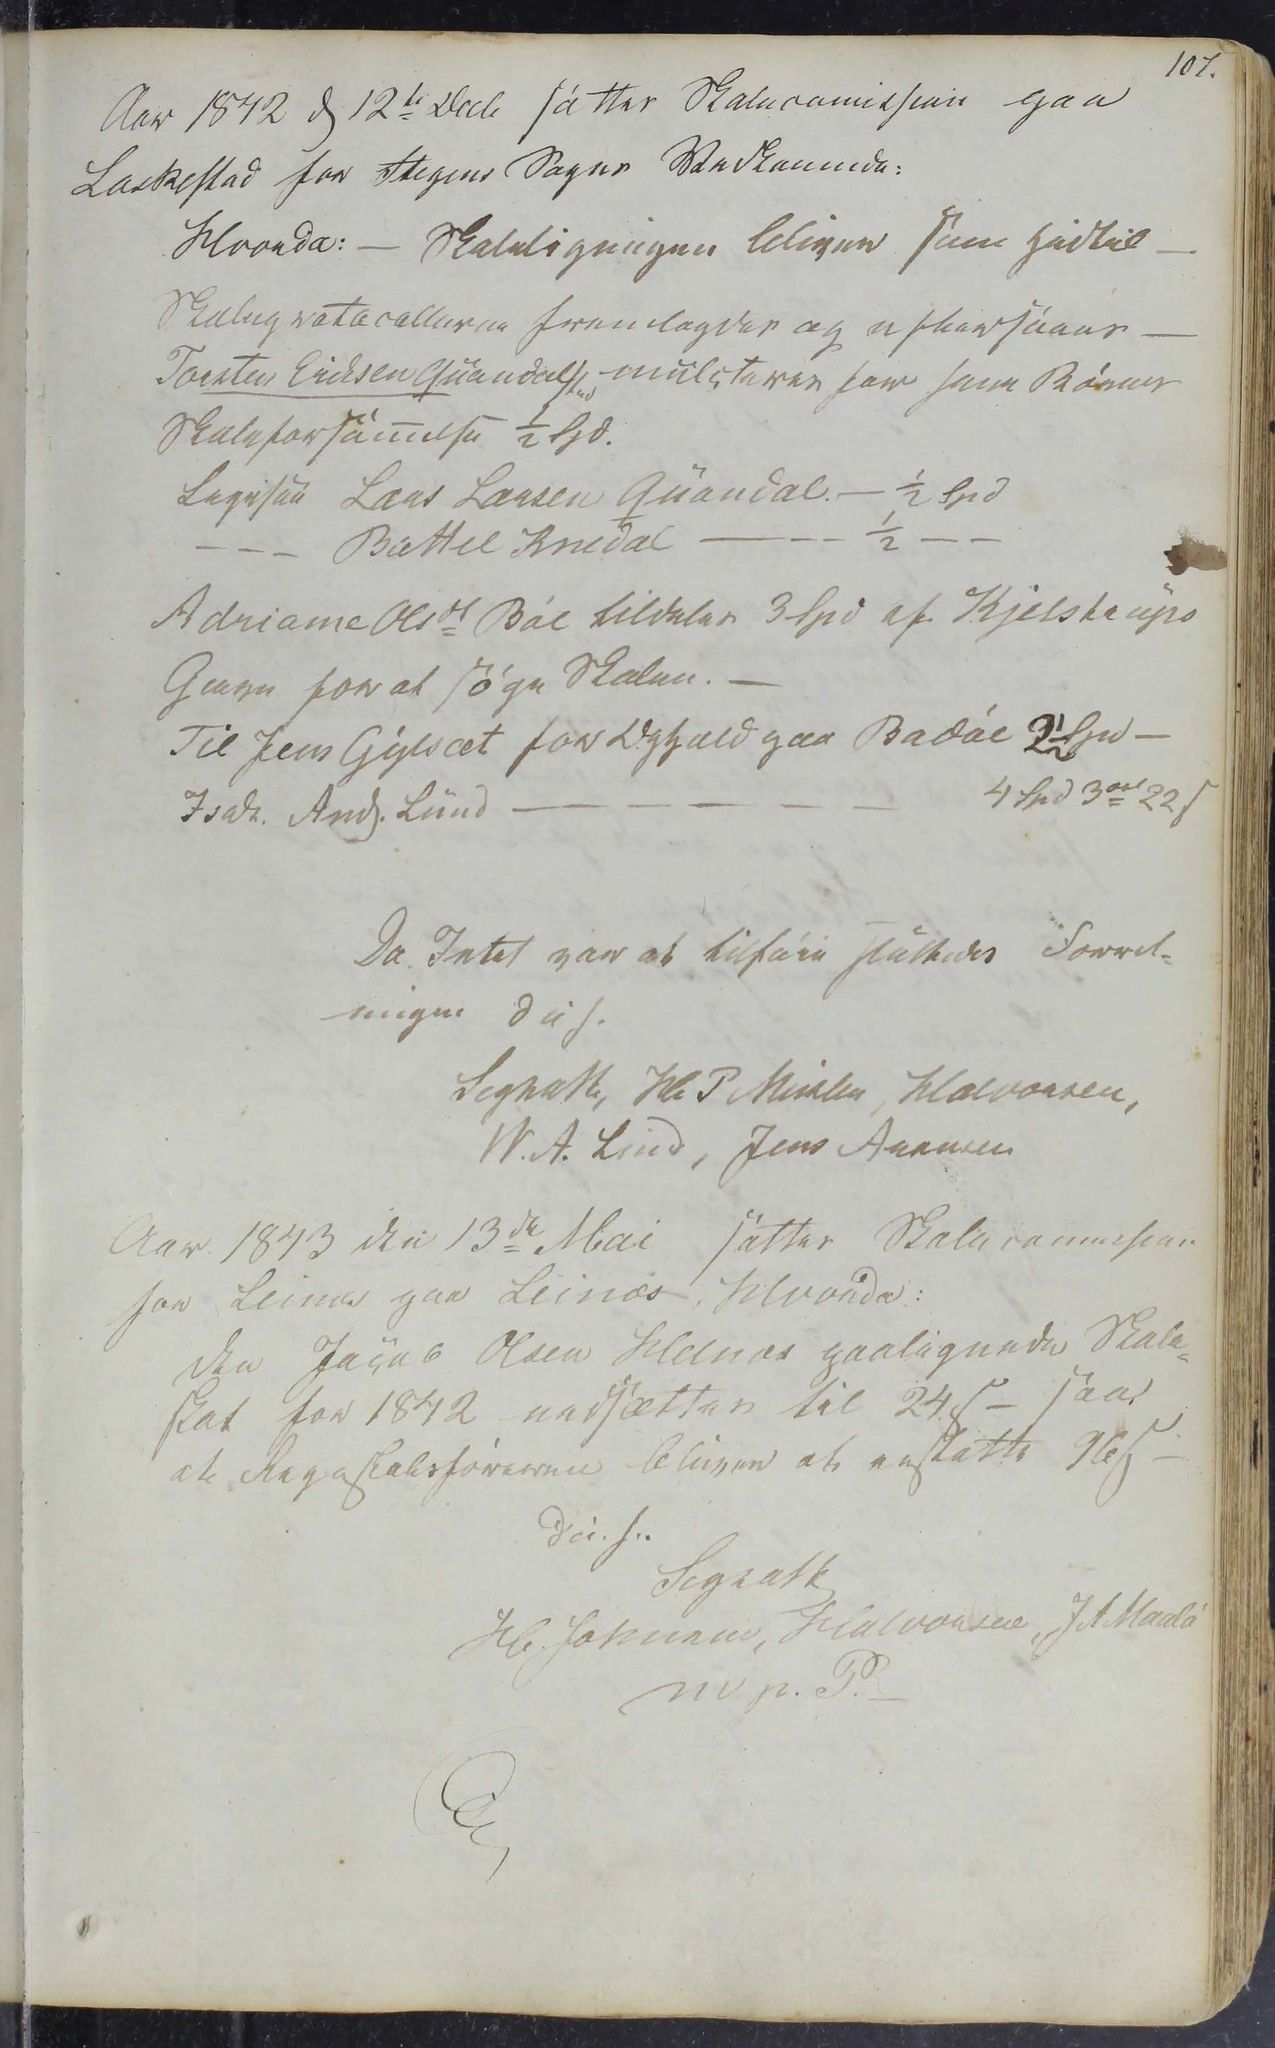 107.
Aar 1842 d 12te Decb sattes Skolecomissjon paa
Laskestad for Stegens Sogns Vedkommende:
Hvorda: — Skoleligningen bliver som hidtil —
Skoleprotocollerne fremlagdes og eftersaaes —
Torsten Ericksen Qvandal mulcteres for sine Börns
Skoleforsömmelse ½ Spd.
Ligesaa Lars Larsen Qvandal. — ½ Spd
--- Battel Bredal ——-- ½ --
Adriane Olsdt Böe tildeles 3 Spd af Kjelstrups
Gave for at söge Skolen. —
Til Jens Gylset for Ophold paa Badöe 2½ Spd —
Isak. Andr. Lund — — — — — — 4 Spd 3 ort 22 s
Da Intet var at tilföie sluttedes Forret-
ningen d. u. s.
Schjøth, P , Halvorsen,
W. A. Lind, Jens Arensen
Aar 1843 den 13de Mai sattes Skolecommission
for Leines paa Leines. Hvorda:
den Jacob Olsen Helnes paalignede Skole-
skat for 1842 nedsættes til 24 s — saa
at Regnskabsföreren bliver at erstatte 96 s —
d. u. s.
Hr. Johnsen, Halvorsen, J A Maalö
m. p. P. —